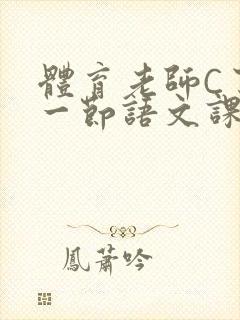 體育老師C
一節語文課
鳳蕭吟